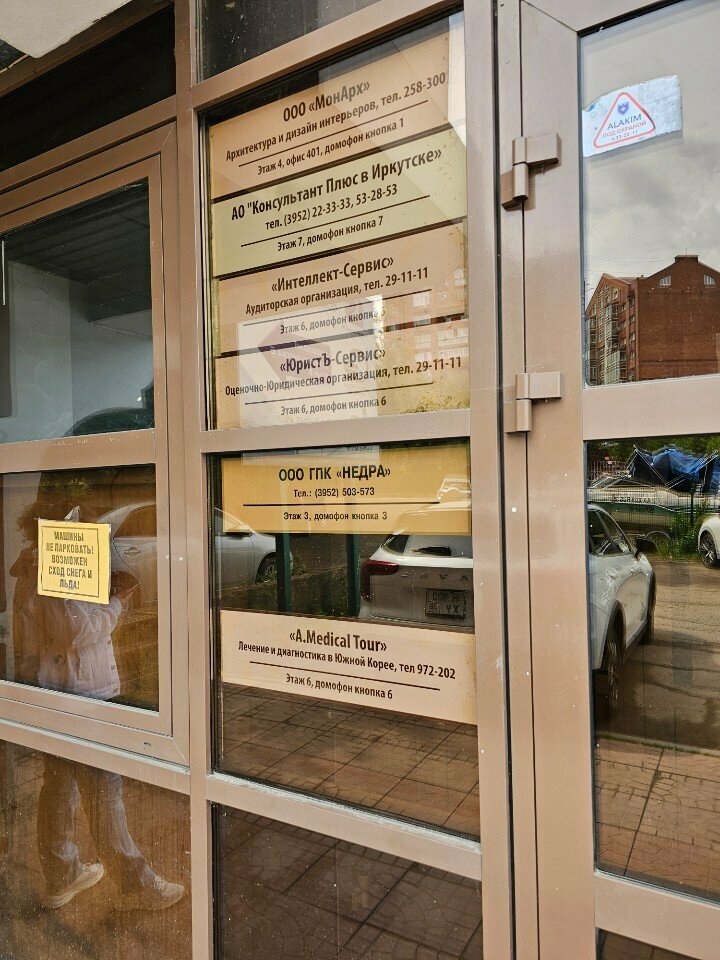 ООО «МонАрх»
Архитектура и дизайн интерьеров, тел. 258-300
Этаж 4, офис 401, домофон кнопка 1
АО "Консультант Плюс в Иркутске»
тел. (3952) 22-33-33, 53-28-53
Этаж 7, домофон кнопка 7
«Интеллект-Сервис»
Аудиторская организация, тел. 29-11-11
Этаж 6, домофон кнопка 6
«ЮристЪ-Сервис»
Оценочно-Юридическая организация, тел. 29-11-11
Этаж 6, домофон кнопка 6
ООО ГПК «НЕДРА»
Тел.: (3952) 503-573
Этаж 3, домофон кнопка 3
«A.Medical Tour»
Лечение и диагностика в Южной Корее, тел 972-202
Этаж 6, домофон кнопка 6
МАШИНЫ
НЕ ПАРКОВАТЬ!
ВОЗМОЖЕН
СХОД СНЕГА И
ЛЬДА!
ALAKIM
ПОД ОХРАНОЙ